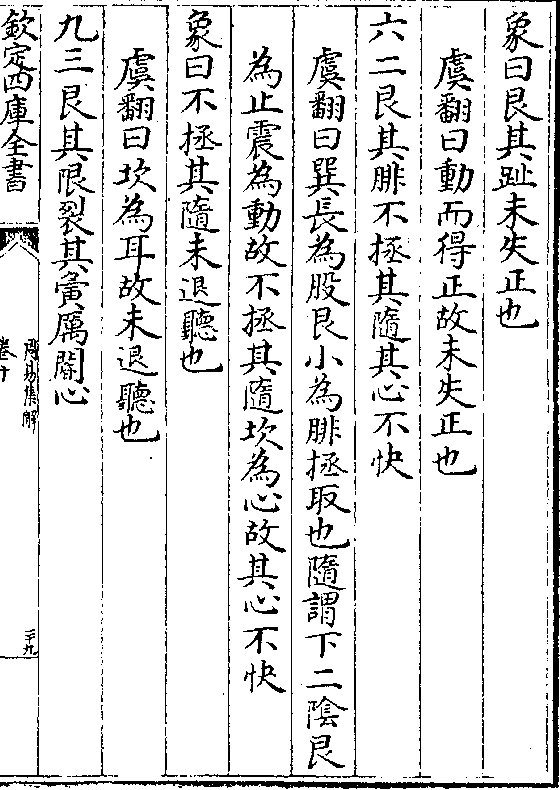 象曰艮其趾未失正也
虞翻曰動而得正故未失正也
六二艮其腓不拯其隨其心不快
虞翻曰巽長為股艮小為腓拯取也隨謂下二隂艮
為止震為動故不拯其隨坎為心故其心不快
象曰不拯其隨未退聽也
虞翻曰坎為耳故未退聽也
九三艮其限裂其夤厲閽心
欽定四庫全書
周易集解
卷十
二十九